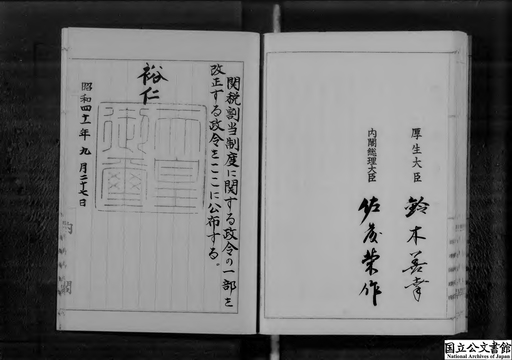 厚生大臣 鈴木善幸
内閣総理大臣 佐藤栄作
関税割当制度に関する政令の一部を
改正する政令をここに公布する。
裕仁
天皇御璽
昭和四十一年九月二十七日
内閣
国立公文書館
National Archives of Japan